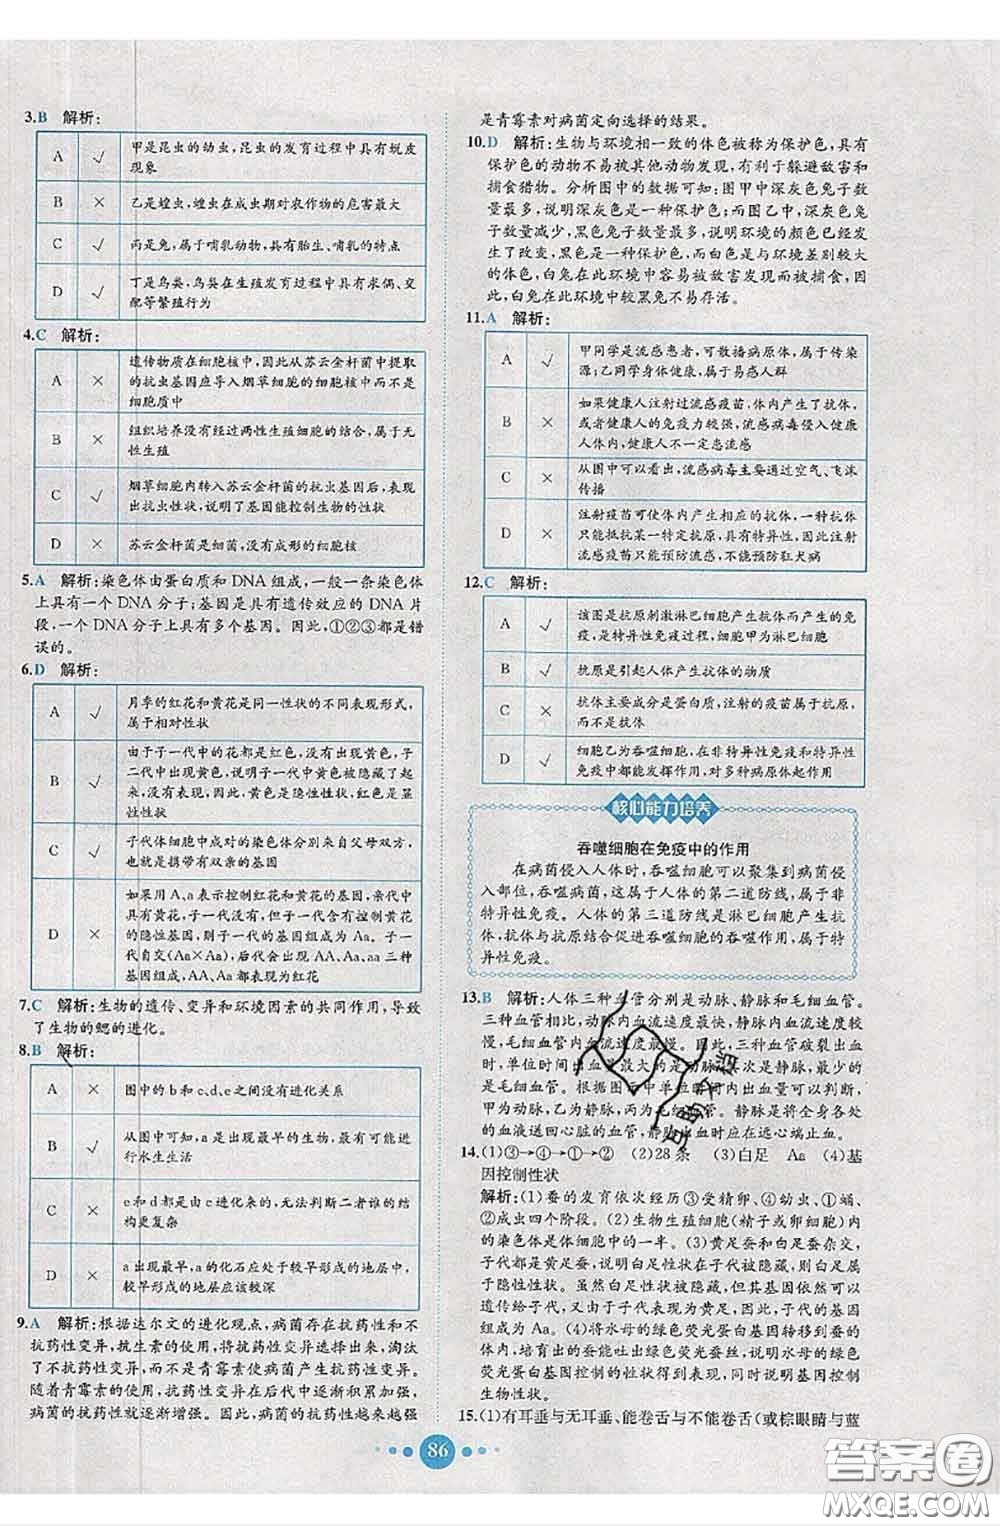 3.B 解析:
A √ 甲是昆虫的幼虫,昆虫的发育过程中具有蜕皮
现象
B × 乙是蝗虫,蝗虫在成虫期对农作物的危害最大
C √ 丙是兔,属于哺乳动物,具有胎生、哺乳的特点
D √ 丁是鸟类,鸟类在生殖发育过程中具有求偶、交
配等繁殖行为
4.C 解析:
A × 遗传物质在细胞核中,因此从苏云金杆菌中提取
的抗虫基因应导入烟草细胞的细胞核中而不是细
胞质中
B × 组织培养没有经过两性生殖细胞的结合,属于无
性生殖
C √ 烟草细胞内转入苏云金杆菌的抗虫基因后,表现
出抗虫性状,说明了基因能控制生物的性状
D × 苏云金杆菌是细菌,没有成形的细胞核
5.A 解析:染色体由蛋白质和DNA组成,一般一条染色体
上具有一个DNA分子;基因是具有遗传效应的DNA片
段,一个DNA分子上具有多个基因。因此,①②③都是错
误的。
6.D 解析:
A √ 月季的红花和黄花是同一性状的不同表现形式,
属于相对性状
B √ 由于子一代中的花都是红色,没有出现黄色,子
二代中出现黄色,说明子一代中黄色被隐藏了起
来,没有表现,因此黄色是隐性性状,红色是显
性性状
C √ 子代体细胞中成对的染色体分别来自父母双方,也
就是携带有双亲的基因
D × 如果用A、a表示控制红花和黄花的基因,亲代中
具有黄花,子一代没有黄花,但含有控制黄花
的隐性基因,则子一代的基因组成为Aa。子一
代自交(Aa×Aa),后代会出现AA、Aa、aa三种
基因组成,AA、Aa都是红花
7.C 解析:生物的遗传、变异和环境因素的共同作用,导致
了生物的鳃的进化。
8.B 解析:
A × 图中的b和c、d、e之间没有进化关系
B √ 从图中可知,a是出现最早的生物,最有可能进
行水生生活
C × e和d都是由c进化来的,无法判断二者谁的结
构更复杂
D × a出现最早,a的化石应处于较早形成的地层中,
较早形成的地层应该较深
9.A 解析:根据达尔文的进化观点,病菌存在抗药性和不
抗药性变异,抗生素的使用,将抗药性变异选择出来,淘汰
了不抗药性变异,而不是青霉素使病菌产生抗药性变异。
随着青霉素的使用,抗药性变异在后代中逐渐积累加强,
病菌的抗药性就逐渐增强。因此,病菌抗药性越来越强
是青霉素对病菌定向选择的结果。
10.D 解析:生物与环境相一致的体色被称为保护色,具有
保护色的动物不易被其他动物发现,有利于躲避敌害和
捕食猎物。分析图中的数据可知:图甲中深灰色兔子数
量最多,说明深灰色是一种保护色;而图乙中,深灰色兔
子数量减少,黑色兔子数量最多,说明环境的颜色已经发
生了改变,黑色是一种保护色,而白色是与环境差别较大
的体色,白兔在此环境中容易被敌害发现而被捕食,因
此,白兔在此环境中较黑兔不易存活。
11.A 解析:
A √ 甲同学是流感患者,可散播病原体,属于传染
源;乙同学身体健康,属于易感人群
B × 如果健康人注射过流感疫苗,体内产生了抗体,
或者健康人的免疫力较强,流感病毒侵入健康
人体内,健康人不一定患流感
C × 从图中可以看出,流感病毒主要通过空气、飞沫
传播
D × 注射疫苗可使体内产生相应的抗体,一种抗体
只能抵抗某一特定抗原,具有特异性,因此注射
流感疫苗只能预防流感,不能预防狂犬病
12.C 解析:
A √ 该图是抗原刺激淋巴细胞产生抗体而产生的免
疫,是特异性免疫过程,细胞甲为淋巴细胞
B √ 抗原是引起人体产生抗体的物质
C × 抗体主要成分是蛋白质,注射的疫苗属于抗原,
而不是抗体
D √ 细胞乙为吞噬细胞,在非特异性免疫和特异性
免疫中都能发挥作用,对多种病原体起作用
核心能力培养
吞噬细胞在免疫中的作用
在病菌侵入人体时,吞噬细胞可以聚集到病菌侵
入部位,吞噬病菌,这属于人体的第二道防线,属于非
特异性免疫。人体的第三道防线是淋巴细胞产生抗
体,抗体与抗原结合促进吞噬细胞的吞噬作用,属于特
异性免疫。
13.B 解析:人体三种血管分别是动脉、静脉和毛细血管。
三种血管相比,动脉内血流速度最快,静脉内血流速度较
慢,毛细血管内血流速度最慢。因此,三种血管破裂出血
时,单位时间出血量最大的是动脉,其次是静脉,最小的
是毛细血管。根据图中单位时间内出血量可以判断,
甲为动脉,乙为静脉,丙为毛细血管。静脉是将全身各处
的血液送回心脏的血管,静脉出血时应在远心端止血。
14.(1)③→④→①→② (2)28条 (3)白足 Aa (4)基
因控制性状
解析:(1)蚕的发育依次经历③受精卵、④幼虫、①蛹、
②成虫四个阶段。(2)生物生殖细胞(精子或卵细胞)内
的染色体是体细胞中的一半。(3)黄足蚕和白足蚕杂交,
子代都是黄足蚕,说明黄足是显性性状,白足是
隐性性状。虽然白足性状被隐藏,但其基因依然会
传给子代,又由于子代表现为黄足,因此子代的基
因组成为Aa。(4)将水母的绿色荧光蛋白基因转入蚕的体
内,培育出的蚕能吐出绿色荧光蚕丝,说明水母的绿色
荧光性状是受基因控制的,同时说明基因控制
生物性状。
15.(1)有耳垂与无耳垂、能卷舌与不能卷舌(或棕眼睛与蓝
86
答案圈
MXQE.COM